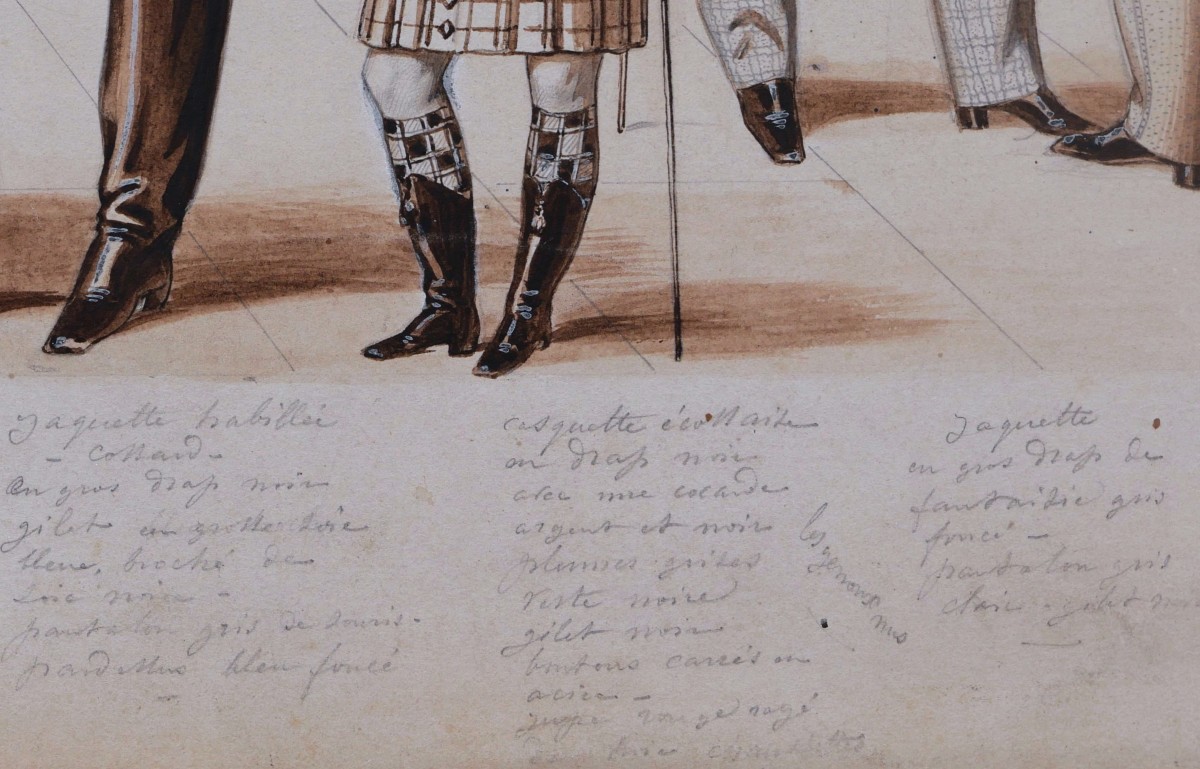 Jaquette habillée
- Cottard -
en gros drap noir
gilet en grosse soie
bleue, broché de
soie noire -
pantalon gris de souris -
pardessus bleu foncé
-
casquette écossaise
en drap noir
avec une cocarde
argent et noir
plumes grises
veste noire
gilet noir
boutons carrés en
acier -
jupe rouge rayé
de noir
les
genoux
nus
Jaquette
en gros drap de
fantaisie gris
foncé -
pantalon gris
clair - gilet